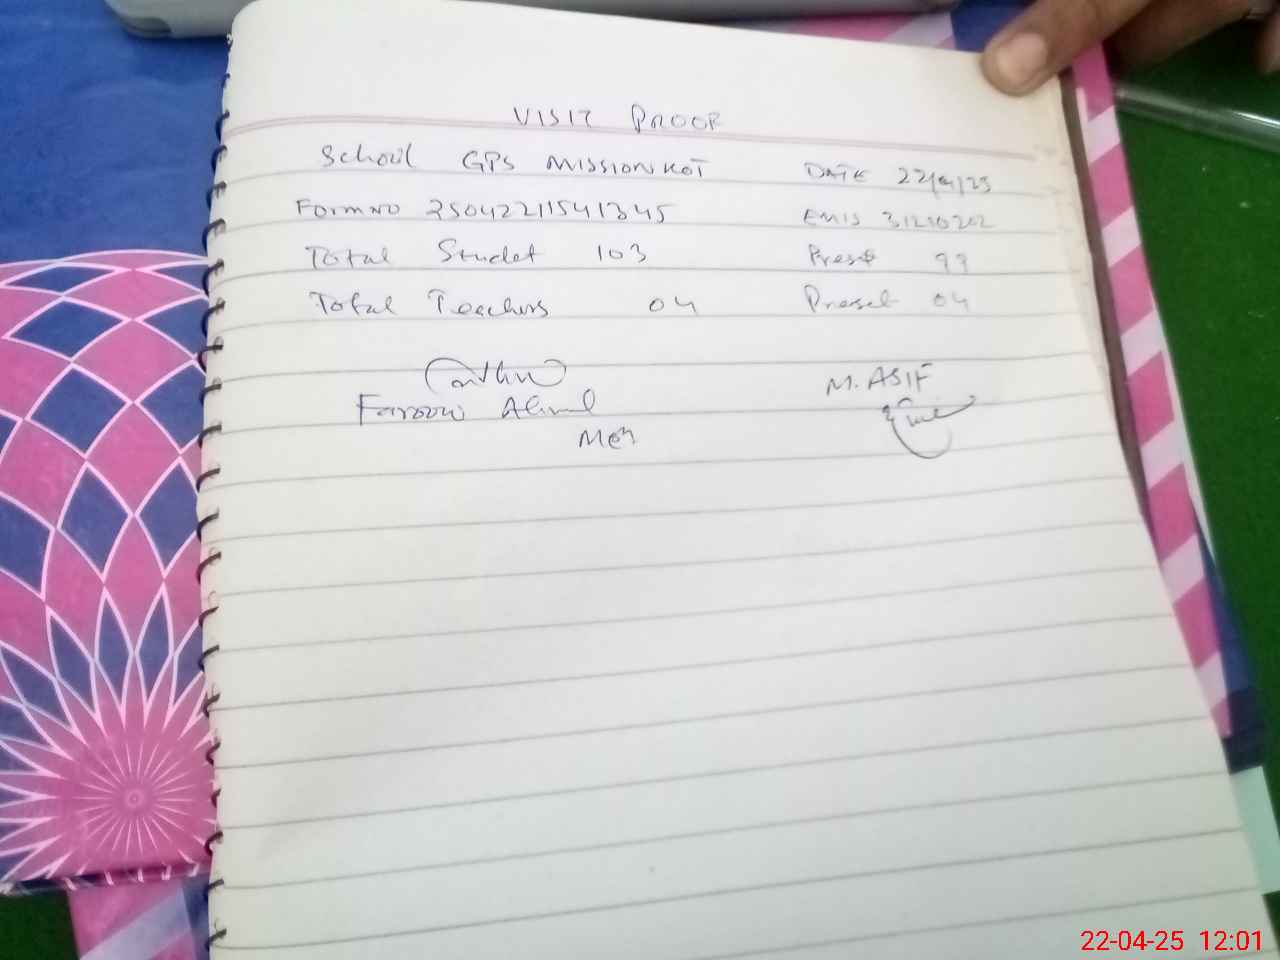 VISIT PROOF
School GPS MISSION KOT DATE 22/4/25
Form NO 25042211541345 EMIS 31210202
Total Studet 103 Preset 99
Total Teachers 04 Preset 04
M. ASIF
Farooq Ahmed
22-04-25 12:01